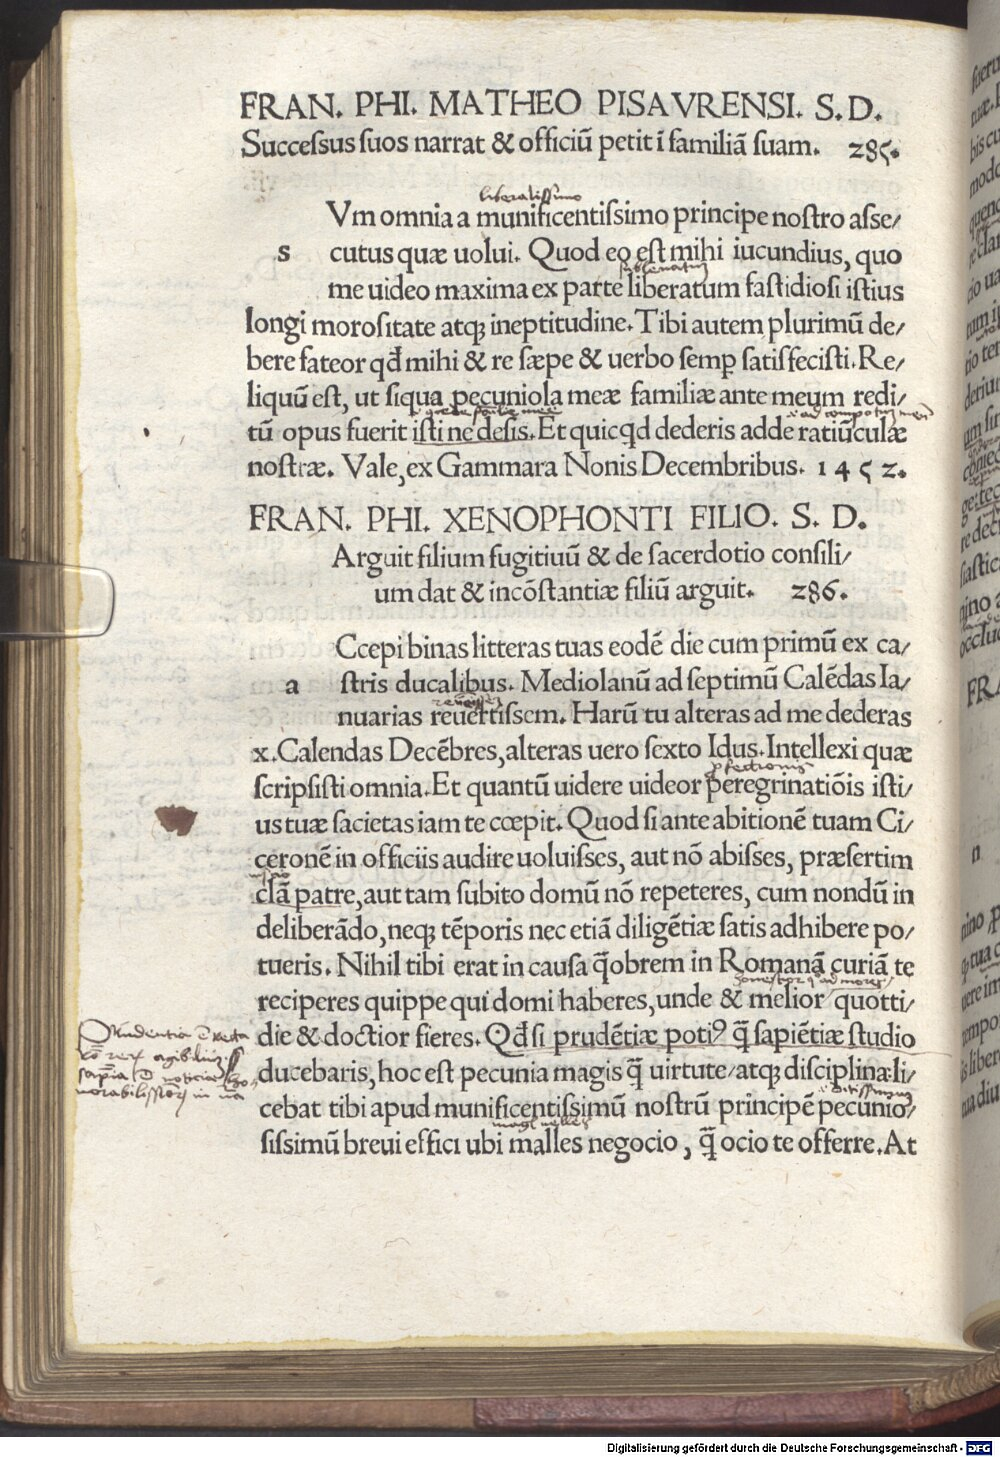 FRAN. PHI. MATHEO PISAVRENSI. S. D.
Succeſſus ſuos narrat & officiū petit ī familiā ſuam. 285.
liberalissimo
Vm omnia a munificentiſsimo principe noſtro aſſe/
s cutus quæ uolui. Quod eo eſt mihi iucundius, quo
subleuatum
me uideo maxima ex parte liberatum faſtidioſi iſtius
longi moroſitate atqꝫ ineptitudine. Tibi autem plurimū de/
bere fateor qđ mihi & re ſæpe & uerbo ſemꝑ ſatiſfeciſti. Re/
liquū eſt, ut ſiqua pecuniola meæ familiæ ante meum redi/
tū opus fuerit iſti ne deſis. Et quicqd dederis adde ratiūculæ
noſtræ. Vale, ex Gammara Nonis Decembribus. 1452.
FRAN. PHI. XENOPHONTI FILIO. S. D.
Arguit filium fugitiuū & de ſacerdotio conſili/
um dat & incōſtantiæ filiū arguit. 286.
Ccepi binas litteras tuas eodē die cum primū ex ca/
a ſtris ducalibus. Mediolanū ad ſeptimū Calēdas Ia/
nuarias reuertiſſem. Harū tu alteras ad me dederas
x. Calendas Decēbres, alteras uero ſexto Idus. Intellexi quæ
ſcripſiſti omnia. Et quantū uidere uideor peregrinatiōis iſti/
us tuæ ſacietas iam te cœpit. Quod ſi ante abitionē tuam Ci/
ceronē in officiis audire uoluiſſes, aut nō abiſſes, præſertim
clā patre, aut tam ſubito domū nō repeteres, cum nondū in
deliberādo, neqꝫ tēporis nec etiā diligētiæ ſatis adhibere po/
tueris. Nihil tibi erat in cauſa q̄obrem in Romanā curiā te
reciperes quippe qui domi haberes, unde & melior quotti/
die & doctior fieres. Qđ ſi prudētiæ potiꝰ q̄ ſapiētiæ ſtudio
ducebaris, hoc eſt pecunia magis q̄ uirtute atqꝫ diſciplina: li/
ditissimum
cebat tibi apud munificentiſſimū noſtrū principē pecunio/
ſiſſimū breui effici ubi malles negocio, q̄ ocio te offerre. At
Digitalisierung gefördert durch die Deutsche Forschungsgemeinschaft - DFG